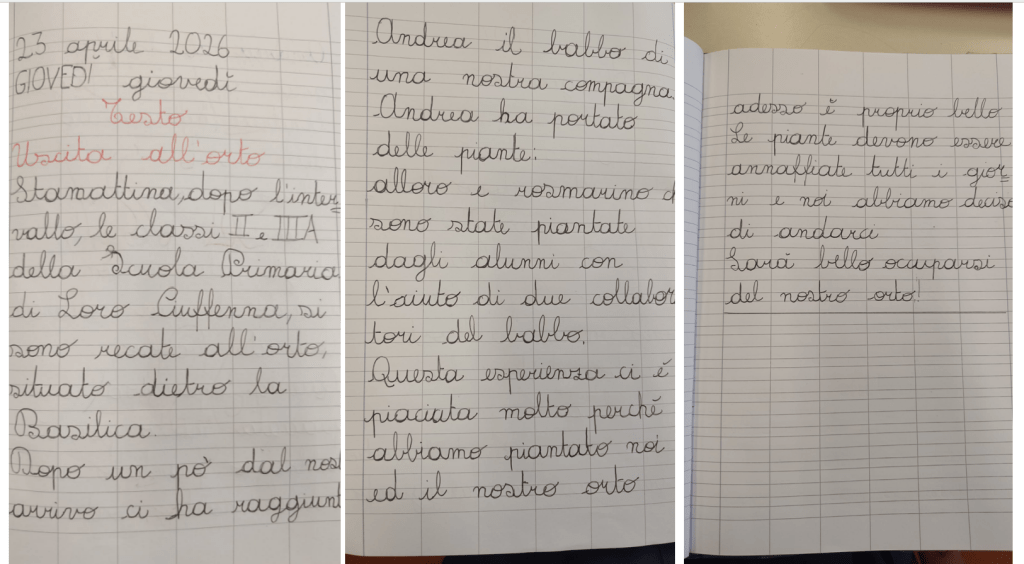 23 aprile 2026
GIOVEDÌ giovedì
Testo
Uscita all'orto
Stamattina, dopo l'inter=
vallo, le classi II e IIIA
della Scuola Primaria
di Loro Ciuffenna, si
sono recate all'orto,
situato dietro la
Basilica.
Dopo un pò dal nost
arrivo ci ha raggiunt
Andrea il babbo di
una nostra compagna.
Andrea ha portato
delle piante:
alloro e rosmarino
sono state piantate
dagli alunni con
l'aiuto di due collabor
tori del babbo.
Questa esperienza ci è
piaciuta molto perchè
abbiamo piantato noi
ed il nostro orto
adesso è proprio bello
Le piante devono essere
annaffiate tutti i gior=
ni e noi abbiamo deciso
di andarci
Sarà bello occuparsi
del nostro orto!